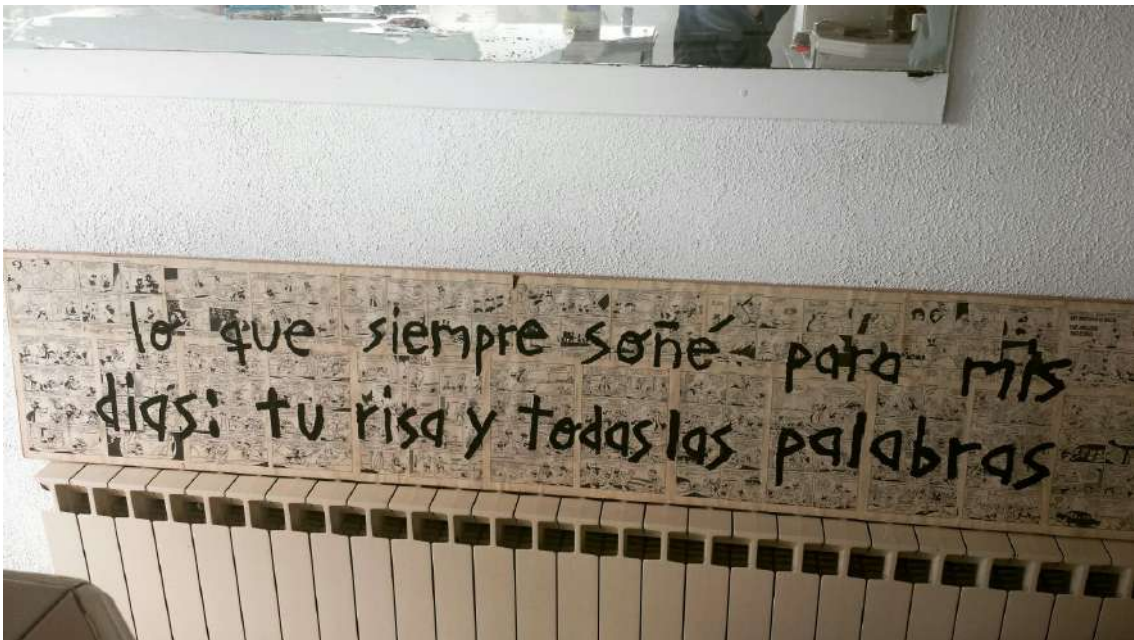 lo que siempre soñé para mis
días: tu risa y todas las palabras